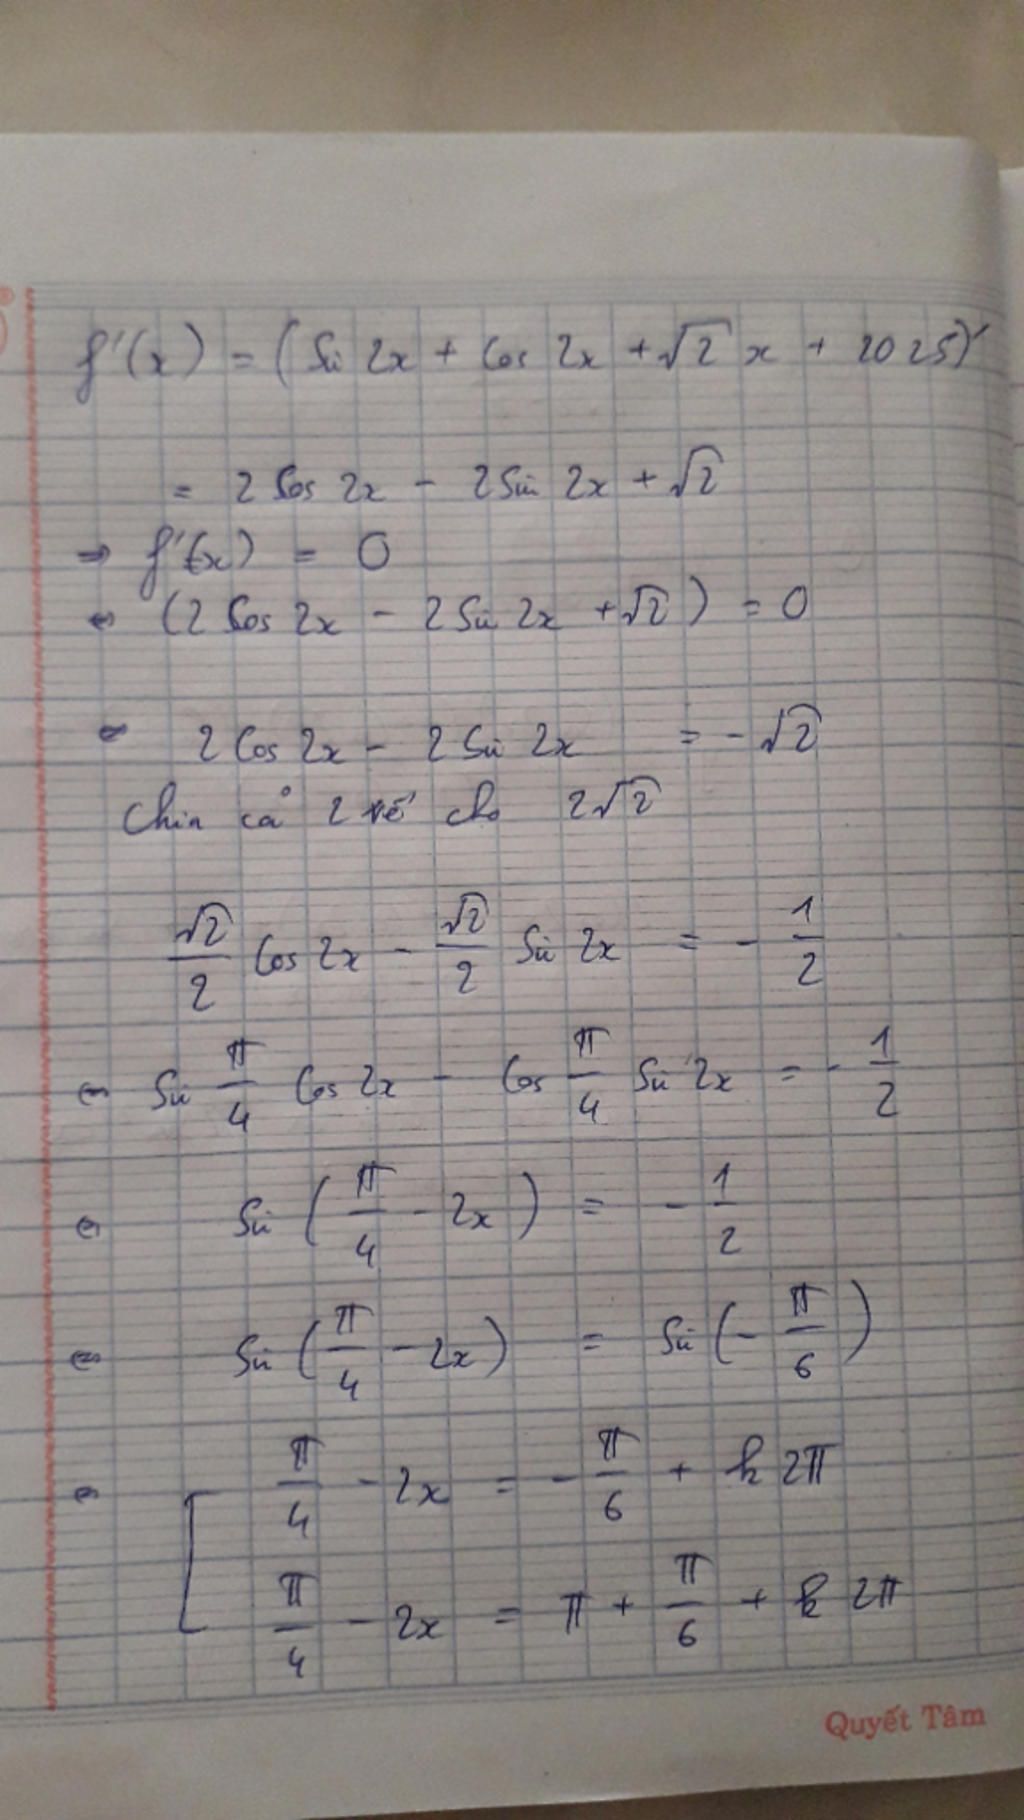 f'(x) = (Sin 2x + Cos 2x + √2 x + 2025)'
= 2 Cos 2x - 2 Sin 2x + √2
⇒ f'(x) = 0
⇔ (2 Cos 2x - 2 Sin 2x + √2) = 0
⇔ 2 Cos 2x - 2 Sin 2x = -√2
Chia cả 2 vế cho 2√2
√2/2 Cos 2x - √2/2 Sin 2x = - 1/2
⇔ Sin π/4 Cos 2x - Cos π/4 Sin 2x = - 1/2
⇔ Sin (π/4 - 2x) = - 1/2
⇔ Sin (π/4 - 2x) = Sin (- π/6)
⇔ [ π/4 - 2x = - π/6 + k2π
π/4 - 2x = π + π/6 + k2π
Quyết Tâm